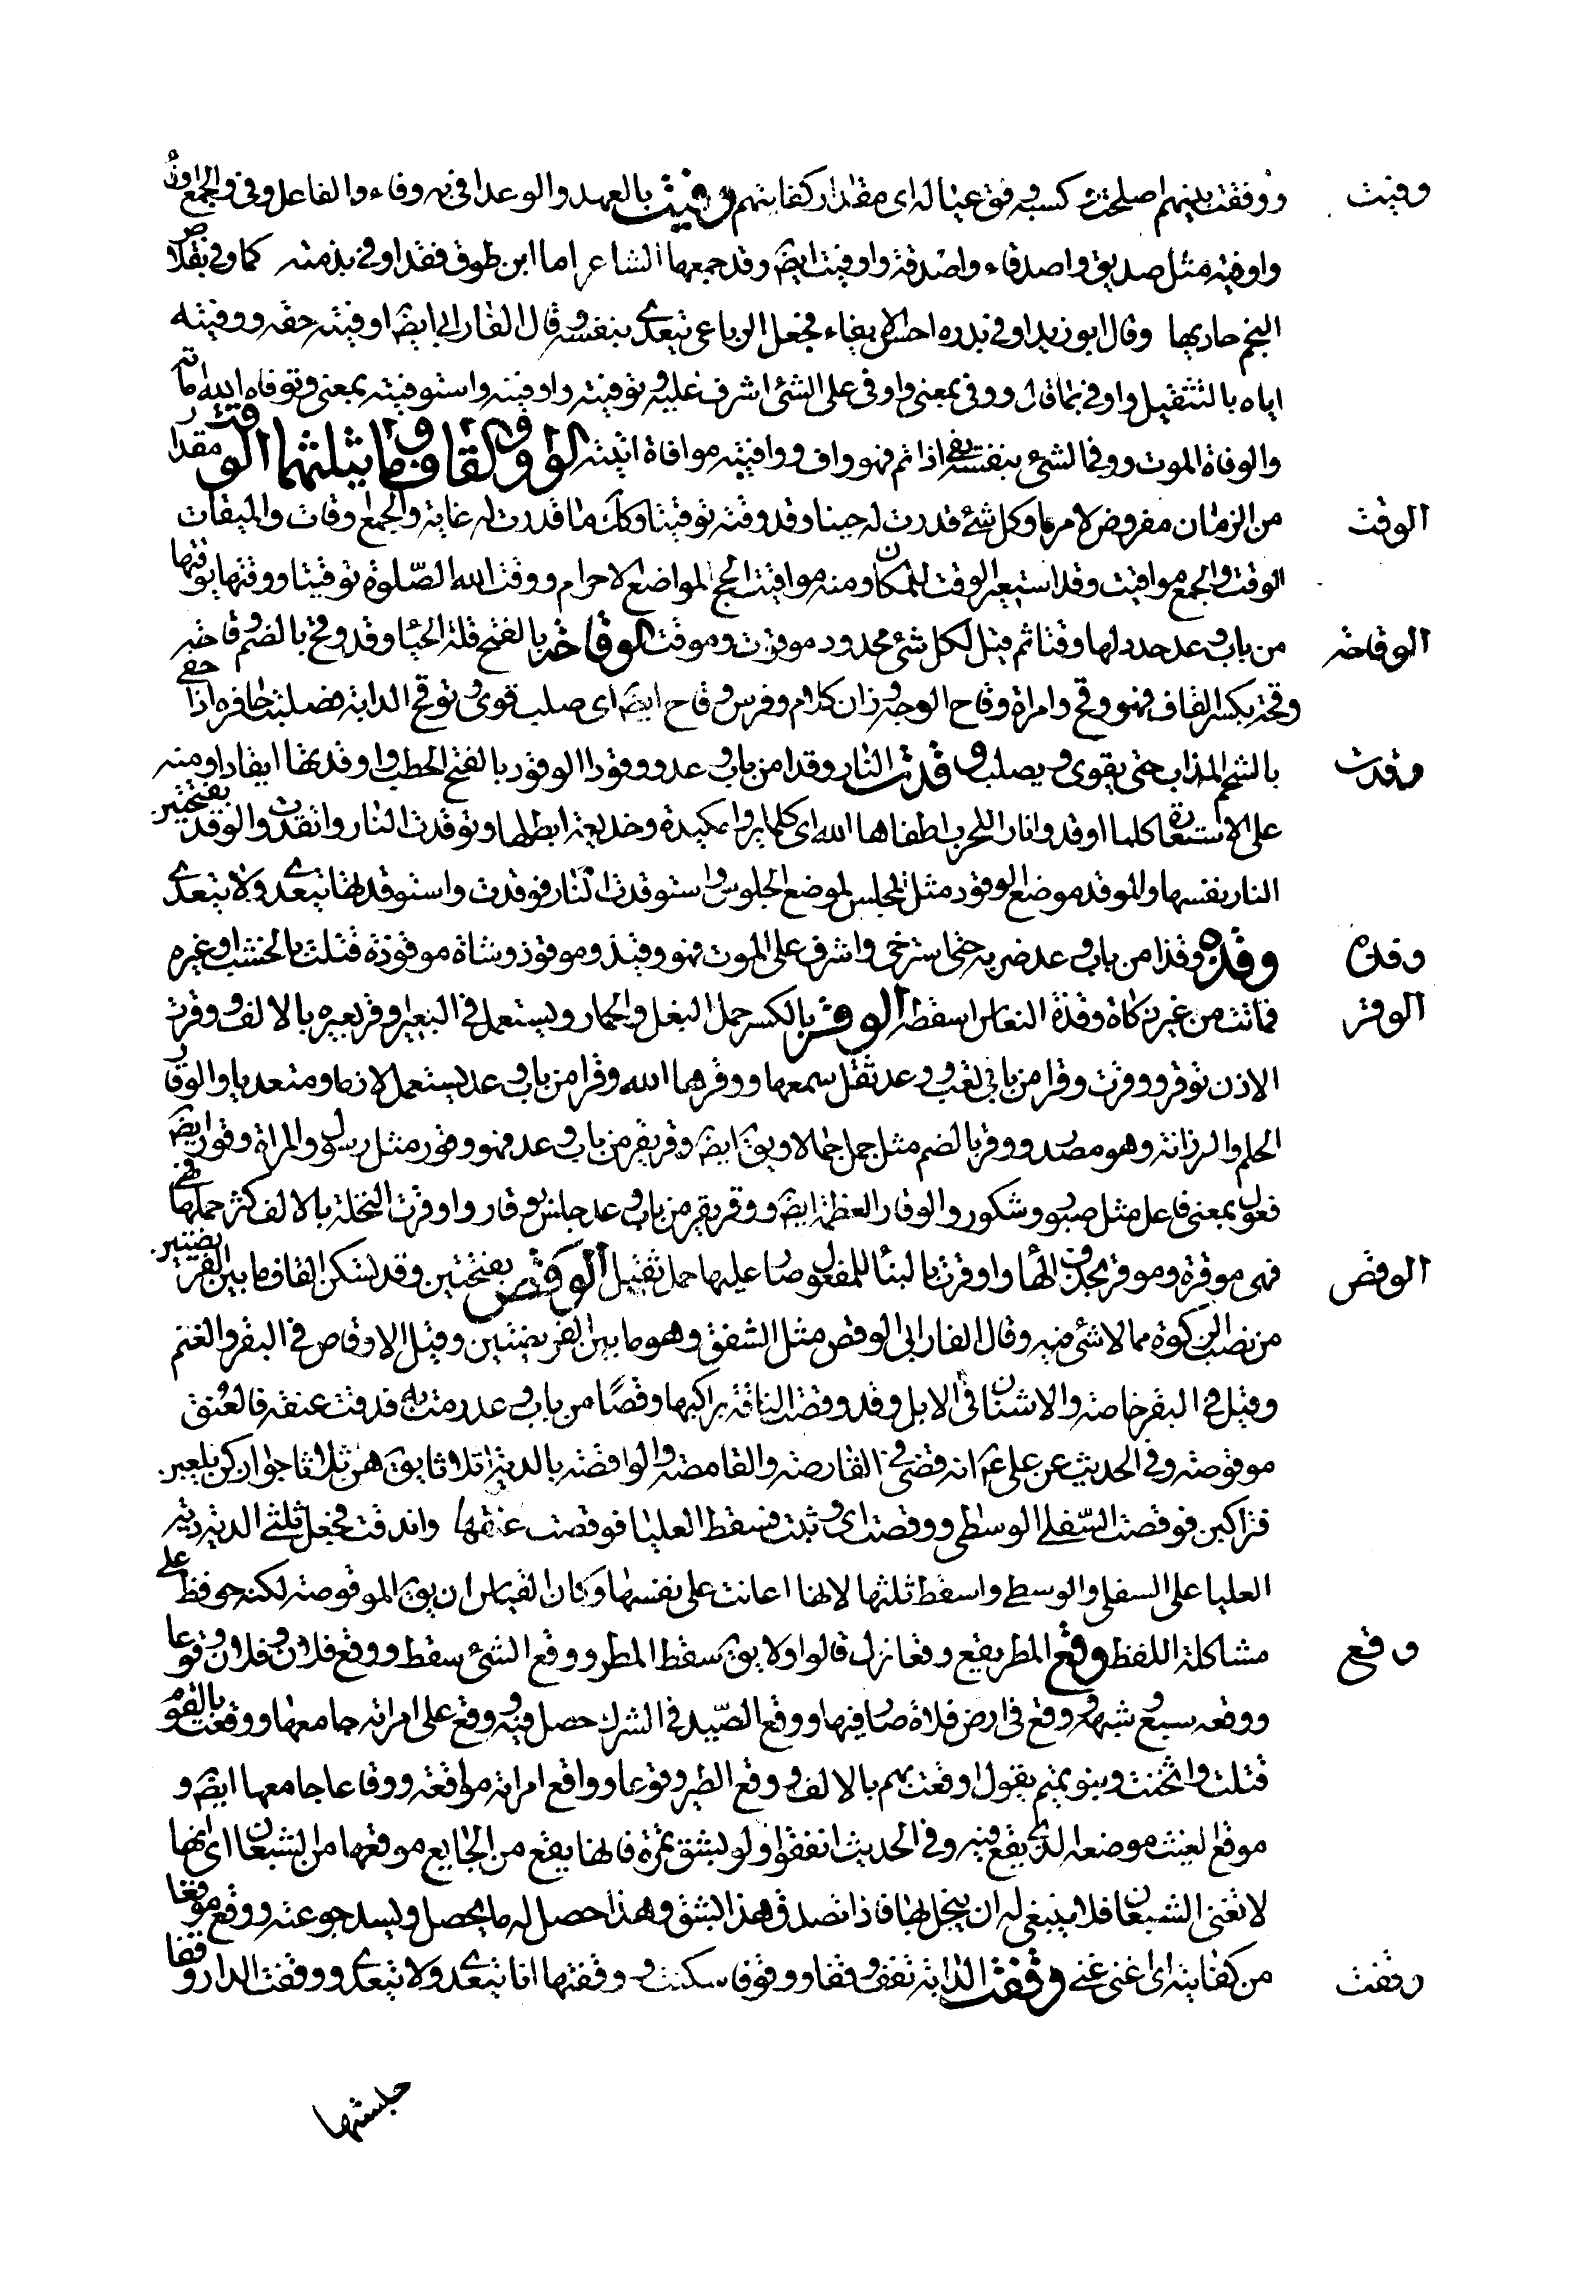 ووفقت بينهم اصلحت وكسبه وفق عياله اى مقدار كفايتهم وفيت بالعهد والوعد افى به وفاء والفاعل وفى والجمع اوف
وفيت
واوفيته مثل صديق واصدقاء واصدقة واوفيت ايضا وقد جمعها الشاعر اما ابن طوق فقد اوفى بذمته كما وفى بقلاص
النجم حاديها وقال ابو زيد اوفى نذره احسن الايفاء فجعل الرباعى يتعدى بنفسه وقال الفارابى ايضا اوفيته حقه ووفيته
اياه بالتثقيل واوفى بما قال ووفى بمعنى واوفى على الشئ اشرف عليه وتوفيته واوفيته واستوفيته بمعنى وتوفاه الله اماته
والوفاة الموت ووفى الشئ بنفسه يفى اذا تم فهو واف ووافيته موافاة اتيته الواو والقاف وما يثلثهما الوقت مقدار
الوقت
من الزمان مفروض لامر ما وكل شئ قدرت له حينا وقد وقته توقيتا وكذلك ما قدرت له غاية والجمع اوقات والميقات
الوقت والجمع مواقيت وقد استعير الوقت للمكان ومنه مواقيت الحج لمواضع الاحرام ووقت الله الصلوة توقيتا ووقتها يوقتها
من باب وعد حدد لها وقتا ثم قيل لكل شئ محدود موقوت وموقت الوقاحة بالفتح قلة الحيا وقد وقح بالضم وقاحة
الوقاحه
وقحة بكسر القاف فهو وقح وامراة وقاح الوجه وزان كلام وفرس وقاح ايضا اى صلب قوى وتوقح الدابة تصليب حافره اذا حفى
بالشحم المذاب حتى يقوى ويصلب وقدت النار وقدا من باب وعد ووقودا الوقود بالفتح الحطب واوقدتها ايقادا ومنه
وقدت
على الاستعارة كلما اوقدوا نارا للحرب اطفاها الله اى كلما دبروا مكيدة وخديعة ابطلها وتوقدت النار واتقدت والوقد بفتحتين
النار نفسها والموقد موضع الوقود مثل المجلس لموضع الجلوس واستوقدت النار توقدت واستوقدتها تتعدى ولا يتعدى
وقذه وقذا من باب وعد ضربه حتى استرخى واشرف على الموت فهو وقيذ وموقوذ وشاة موقوذة قتلت بالخشب او غيره
وقذه
فماتت من غير ذكاة وقذه النعاس اسقطه الوقر بالكسر حمل البغل والحمار ويستعمل فى البعير واوقر بعيره بالالف ووقرت
الوقر
الاذن توقر ووقرت وقرا من بابى تعب ووعد ثقل سمعها ووقرها الله وقرا من باب وعد يستعمل لازما ومتعديا والوقار
الحلم والرزانة وهو مصدر وقر بالضم مثل جمل جمالا ويق ايضا وقر يقر من باب وعد فهو وقور مثل رسول والمراة وقور ايضا
فعول بمعنى فاعل مثل صبور وشكور والوقار العظمة ايضا ووقر يقر من باب وعد جلس بوقار واوقرت النخلة بالالف كثر حملها
فهى موقرة وموقر بحذف الها واوقرت بالبنا للمفعول صار عليها حمل ثقيل الوقص بفتحتين وقد تسكن القاف ما بين الفريضتين
الوقص
من نصب الزكوة مما لا شئ فيه وقال الفارابى الوقص مثل الشنق وهو ما بين الفريضتين وقيل الاوقاص فى البقر والغنم
وقيل فى البقر خاصه والاشناق فى الابل وقد وقصت الناقة براكبها وقصًا من باب وعد رمت به فدقت عنقه فالعنق
موقوصة وفى الحديث عن على عم انه قضى فى القارصة والقامصة والواقصة بالدية اثلاثا يق هن ثلث جوار كن يلعبن
فتراكبن فقرصت السفلى الوسطى فقمصت اى وثبت فسقط العليا فوقصت عنقها واندقت فجعل ثلثى الدية دية
العليا على السفلى والوسطى واسقط ثلثها لانها اعانت على نفسها وكان القياس ان يق الموقوصة لكنه حوفظ على
مشاكلة اللفظ وقع المطر يقع وقعا نزل قالوا ولا يق سقط المطر ووقع الشئ سقط ووقع فلان فى فلان وقوعا
وقع
ووقعه سبه وثلبه ووقع فى ارض فلاة صار فيها ووقع الصيد فى الشرك حصل فيه ووقع على امراته جامعها ووقعت بالقوم
قتلت واثخنت وبنو تميم يقول اوقعت بهم بالالف ووقع الطير وقوعا وواقع امراته مواقعة ووقاعا جامعها ايضا و
موقع الغيث موضعه الذى يقع فيه وفى الحديث اتقوا النار ولو بشق تمرة فانها يقع من الجايع موقعها من الشبعان اى انها
لا تغنى الشبعان فلا ينبغى له ان يبخل بها فاذا تصدق هذا بشق وهذا حصل له ما يحصل ويسد جوعته ووقع موقعا
من كفايته اى اغنى غنى وقفت الدابة تقف وقفا ووقوفا سكنت ووقفتها انا يتعدى ولا يتعدى ووقفت الدار وقفا
وقفت
حبستها